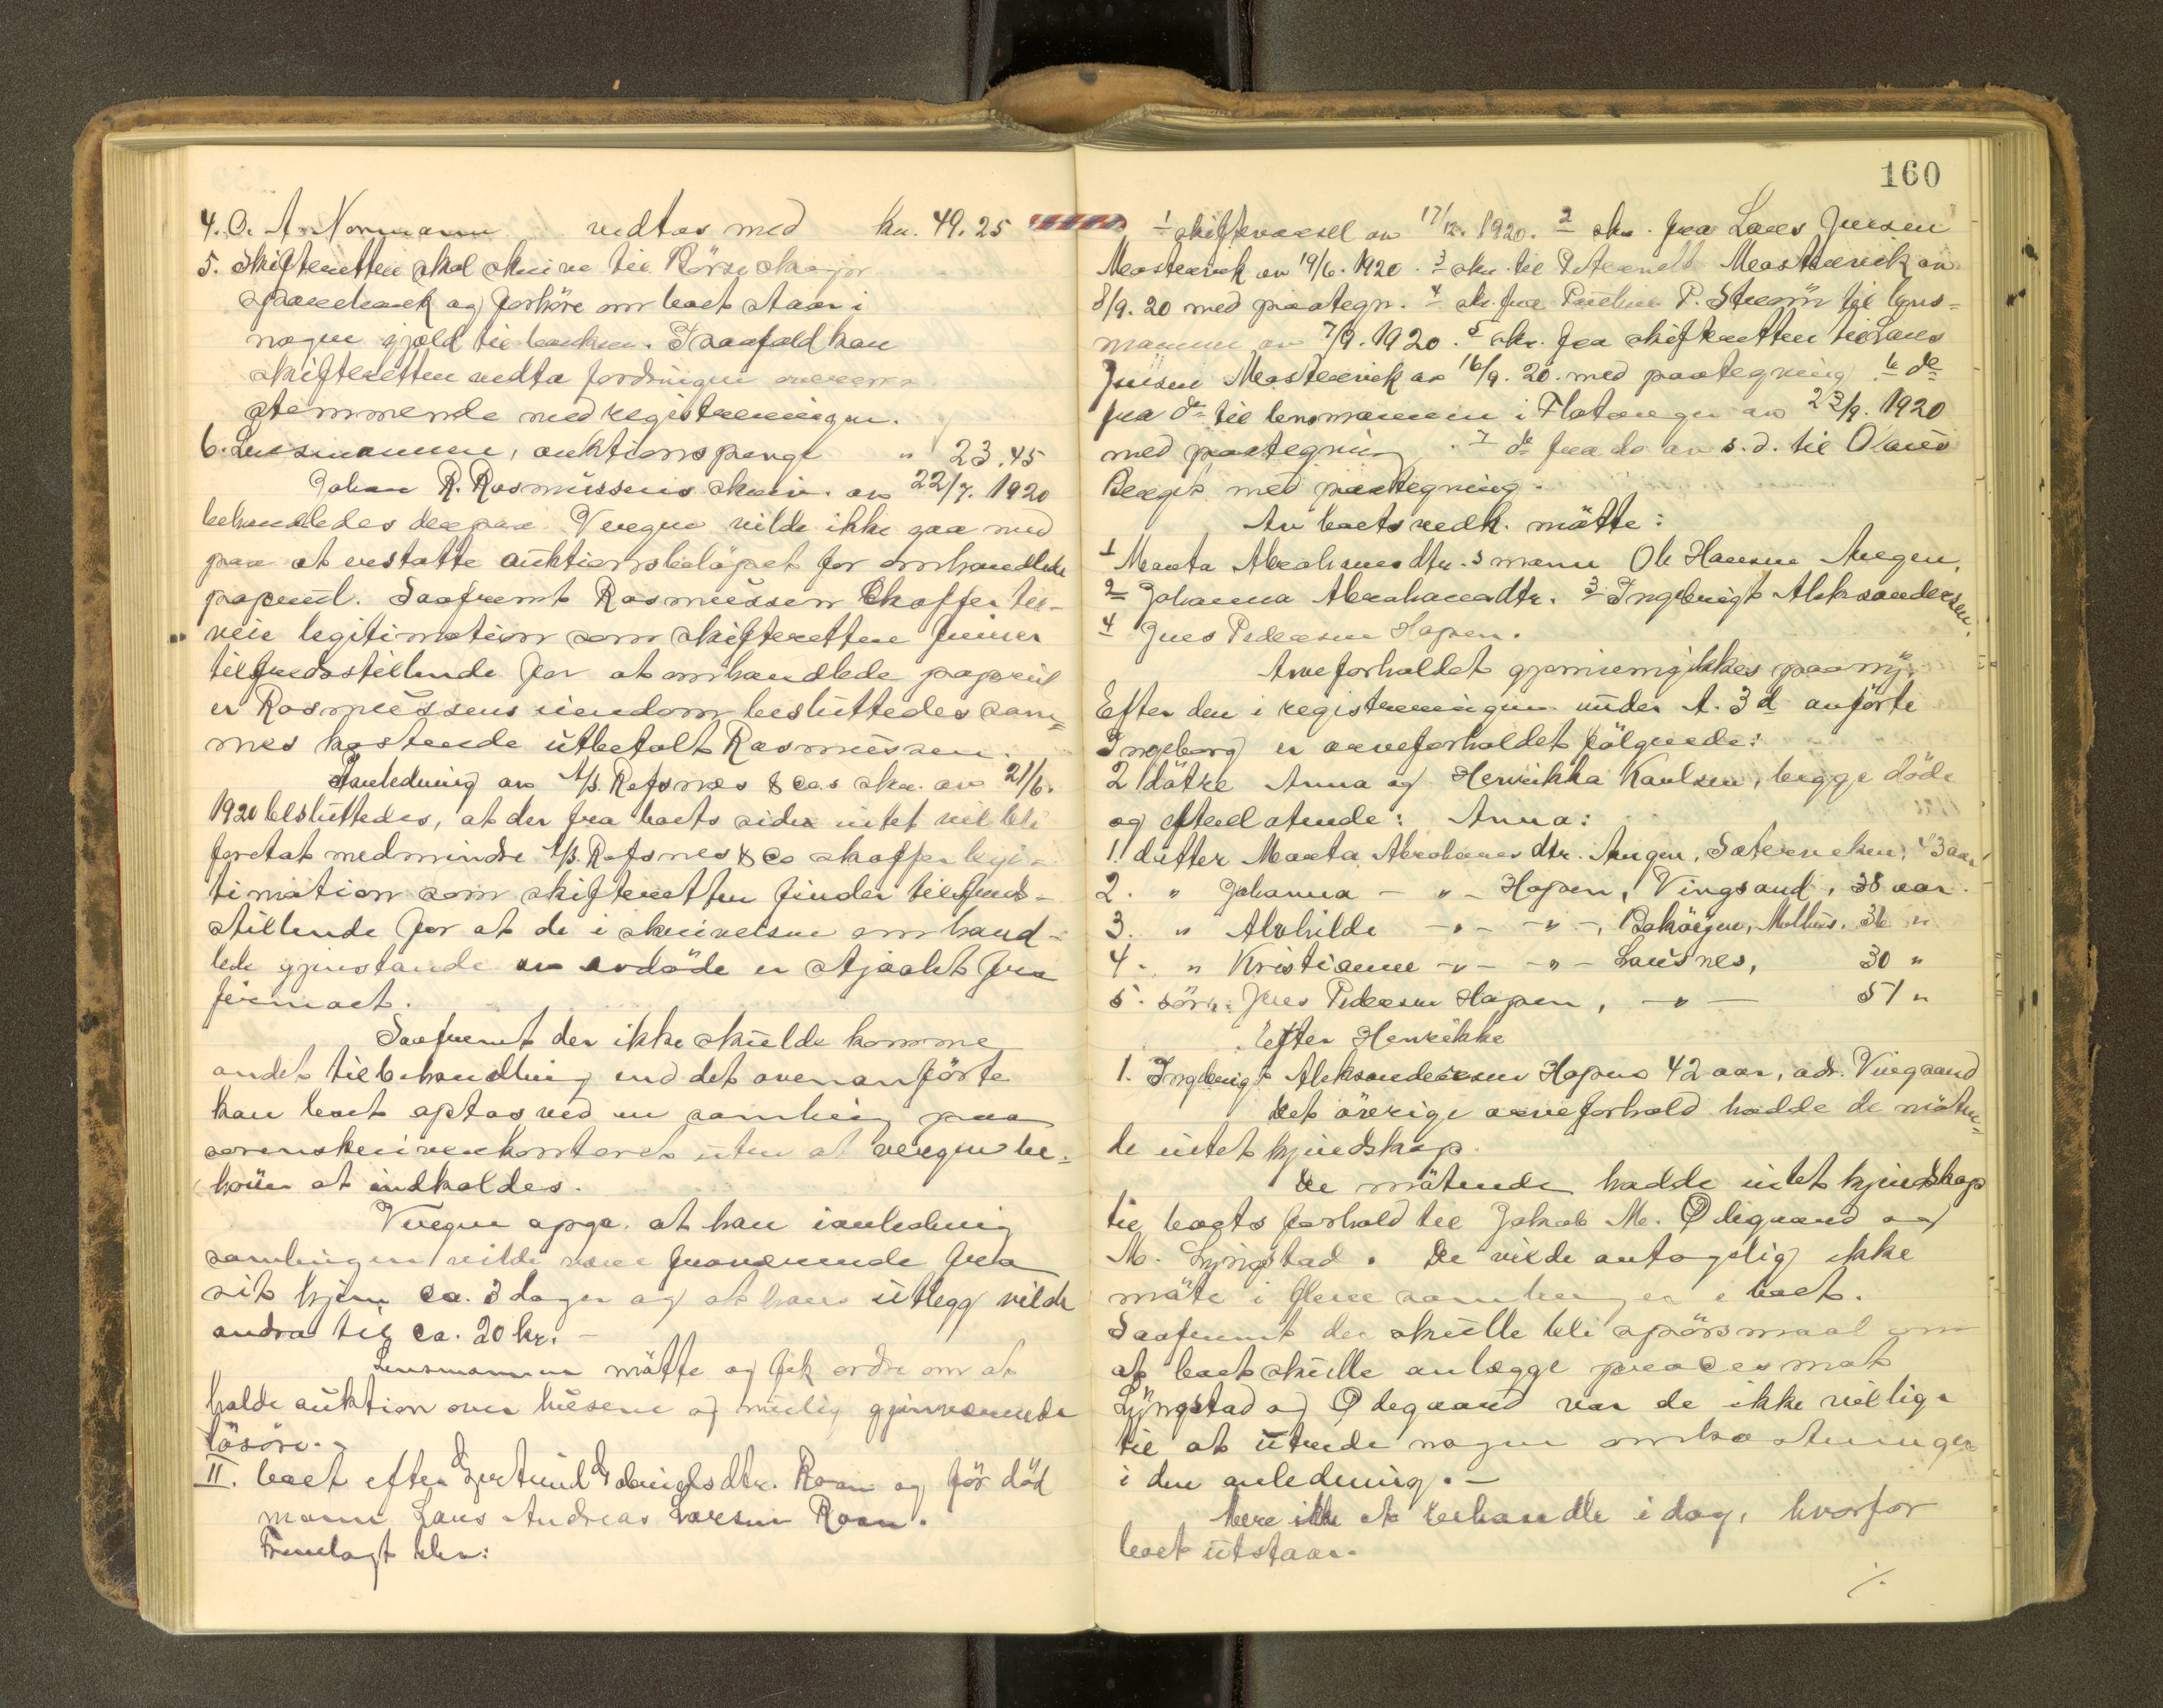 4. O. A. Normann vedtas med kr. 49.25
5. Skifteretten skal skrive til Börseskogn
sparebank og forhöre om boet staar i
nogen gjæld til banken. I saafald kan
skifteretten vedta fordringen overens-
stemmende med registreringen.
6. Lensmannen, auktionspenge " 23.45
Johan R. Rasmussens skriv. av 22/7. 1920
behandledes derpaa. Vergen vilde ikke gaa med
paa at erstatte auktionsbelöpet for omhandlede
papend. Saafremt Rasmussen skaffer til-
veie legitimation som skifteretten finner
tilfredsstillende for at omhandlede
er Rasmussens eiendom besluttedes sam-
mes kostende utbetalt Rasmussen.
I anledning av A/S. Refsnes & Co.s skr. av 21/6.
1920 besluttedes, at der fra boets side intet vil bli
foretat medmindre A/S. Refsnes & Co skaffer legi-
timation som skifteretten finder tilfreds-
stillende for at de i skrivelsen omhand-
lede gjenstande av avdöde er stjaalet fra
firmaet.
Saafremt der ikke skulde komme
andet til behandling end det ovenanförte
kan boet optas ved en samling paa
sorenskriverkontoret uten at vergen be-
höver at indkaldes.
Vergen opga. at han i anledning
samlingen vilde være fraværende fra
sit hjem ca. 3 dager og at hans utlegg vilde
andra til ca. 20 kr. –
Lensmannen mötte og fik ordre om at
holde auktion over husene og mulig gjenværende
lösöre. –
II. boet efter Gjertrud Ingebrigtsdtr. Roan ogför död
mann Lars Andreas Larsen Roan.
Fremlagt blev:
160
1 skiftevarsel av 17/12. 1920. 2 skr. fra Lars Jensen
Mastervik av 19/6. 1920. 3 skr. til Peternelle Mastervik av
8/9. 20 med paategn. 4 skr. fra Pauline P. Ström til lens-
mannen av 7/9. 1920. 5 skr. fra skifteretten til Lars
Jensen Mastervik av 16/9. 20. med paategning. 6 do
fra do til lensmannen i Flatanger av 23/9. 1920
med paategning. 7 do fra do av s.d. til Olaus
med paategning.
Av boets vedk. mötte:
1 Marta Abrahamsdtr.s mann Ole Hansen Angen,
2 Johanna Abrahamsdtr. 3 Ingebrigt Aleksandersen,
4 Jens Pedersen Hopen.
Arveforholdet gjennemgikkes paa ny.
Efter den i registreringen under A. 3 d anförte
Ingeborg er arveforholdet fölgende:
2 dötre Anna og Henrikka Karlsen, begge döde
og efterlatende: Anna:
1. datter Marta Abrahamsdtr. Angen, Sæterviken, 43 aar
2. " Johanna – " – Hopen, Vingsand, 38 aar.
3. " Alvhilde – " – – " –, Baköyen, Malhus, 36 "
4. " Kristianne – " – – " – Lausnes, 30 "
5. sön. Jens Pedersen Hopen, – " – 51 "
Efter Henrikke
1. Ingebrigt Aleksandersen Hopen 42 aar, adr. Vingsand
Det övrige arveforhold hadde de möten-
de intet kjendskap.
De mötende hadde intet kjendskap
til boets forhold til Jakob M. Ödegaard og
M. Lyngstad. De vilde antagelig ikke
möte i flere samlinger i boet.
Saafremt der skulle bli spörsmaal om
at boet skulle anlægge proces mot
Lyngstad og Ödegaard var de ikke villige
til at utrede nogen omkostninger
i den anledning. –
Mere ikke at behandle i dag, hvorfor
boet utstaar.